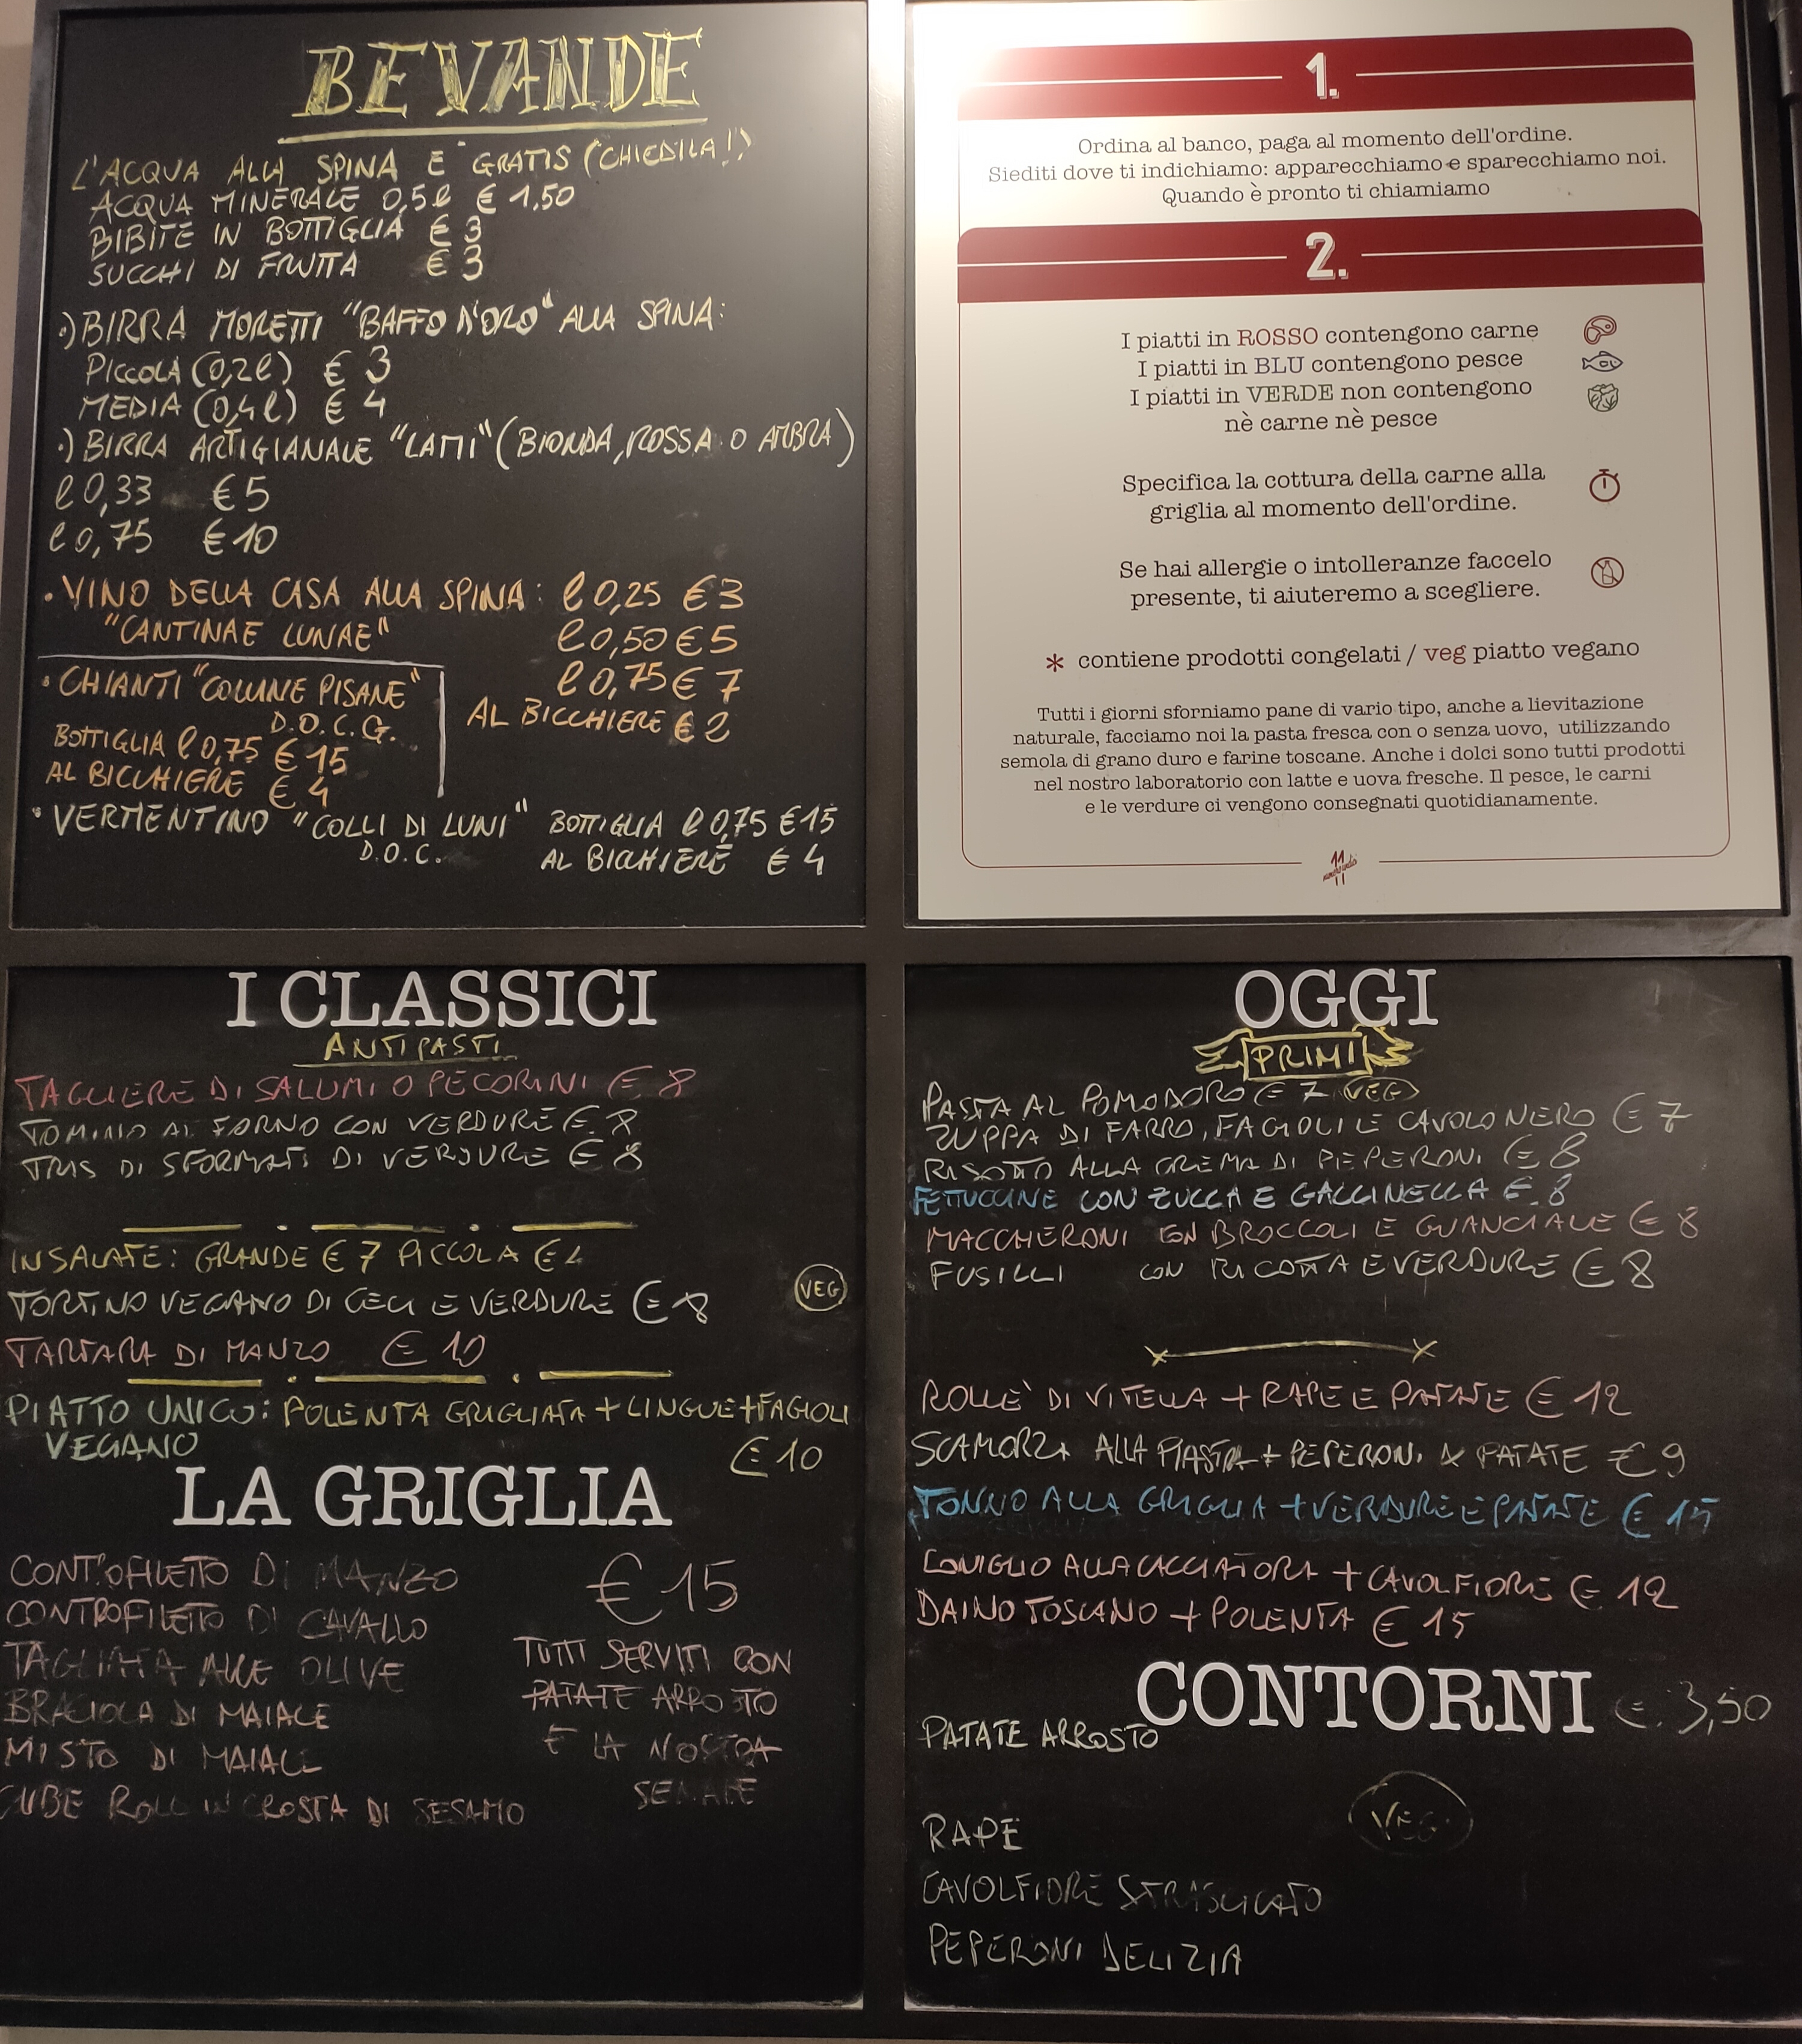 BEVANDE
L'ACQUA ALLA SPINA E' GRATIS (CHIEDILA!)
ACQUA MINERALE 0,5l € 1,50
BIBITE IN BOTTIGLIA € 3
SUCCHI DI FRUTTA € 3
•) BIRRA MORETTI "BAFFO D'ORO" ALLA SPINA:
PICCOLA (0,2l) € 3
MEDIA (0,4l) € 4
•) BIRRA ARTIGIANALE "LAMI" (BIONDA, ROSSA O AMBRA)
l 0,33 € 5
l 0,75 € 10
• VINO DELLA CASA ALLA SPINA: l 0,25 € 3
"CANTINAE LUNAE" l 0,50 € 5
l 0,75 € 7
AL BICCHIERE € 2
• CHIANTI "COLLINE PISANE"
D.O.C.G.
BOTTIGLIA l 0,75 € 15
AL BICCHIERE € 4
• VERMENTINO "COLLI DI LUNI" BOTTIGLIA l 0,75 € 15
D.O.C. AL BICCHIERE € 4
1.
Ordina al banco, paga al momento dell'ordine.
Siediti dove ti indichiamo: apparecchiamo e sparecchiamo noi.
Quando è pronto ti chiamiamo
2.
I piatti in ROSSO contengono carne
I piatti in BLU contengono pesce
I piatti in VERDE non contengono
nè carne nè pesce
Specifica la cottura della carne alla
griglia al momento dell'ordine.
Se hai allergie o intolleranze faccelo
presente, ti aiuteremo a scegliere.
* contiene prodotti congelati / veg piatto vegano
Tutti i giorni sforniamo pane di vario tipo, anche a lievitazione
naturale, facciamo noi la pasta fresca con o senza uovo, utilizzando
semola di grano duro e farine toscane. Anche i dolci sono tutti prodotti
nel nostro laboratorio con latte e uova fresche. Il pesce, le carni
e le verdure ci vengono consegnati quotidianamente.
11
11
I CLASSICI
ANTIPASTI
TAGLIERE DI SALUMI O PECORINI € 8
TOMINO AL FORNO CON VERDURE € 8
TRIS DI SFORMATI DI VERDURE € 8
INSALATE: GRANDE € 7 PICCOLA € 4
TORTINO VEGANO DI CECI E VERDURE € 8 VEG
TARTARA DI MANZO € 10
PIATTO UNICO: POLENTA GRIGLIATA + LINGUE + FAGIOLI
VEGANO € 10
LA GRIGLIA
CONTROFILETTO DI MANZO
CONTROFILETTO DI CAVALLO
TAGLIATA ALLE OLIVE
BRACIOLA DI MAIALE
MISTO DI MAIALE
CUBE ROLL IN CROSTA DI SESAMO
€ 15
TUTTI SERVITI CON
PATATE ARROSTO
E LA NOSTRA
SENAPE
OGGI
PRIMI
PASTA AL POMODORO € 7 VEG
ZUPPA DI FARRO, FAGIOLI E CAVOLO NERO € 7
RISOTTO ALLA CREMA DI PEPERONI € 8
FETTUCCINE CON ZUCCA E GALLINELLA € 8
MACCHERONI CON BROCCOLI E GUANCIALE € 8
FUSILLI CON RICOTTA E VERDURE € 8
ROLLE' DI VITELLA + RAPE E PATATE € 12
SCAMORZA ALLA PIASTRA + PEPERONI & PATATE € 9
TONNO ALLA GRIGLIA + VERDURE E PATATE € 15
CONIGLIO ALLA CACCIATORA + CAVOLFIORE € 12
DAINO TOSCANO + POLENTA € 15
CONTORNI € 3,50
PATATE ARROSTO
VEG
RAPE
CAVOLFIORE STRASCICATO
PEPERONI DELIZIA